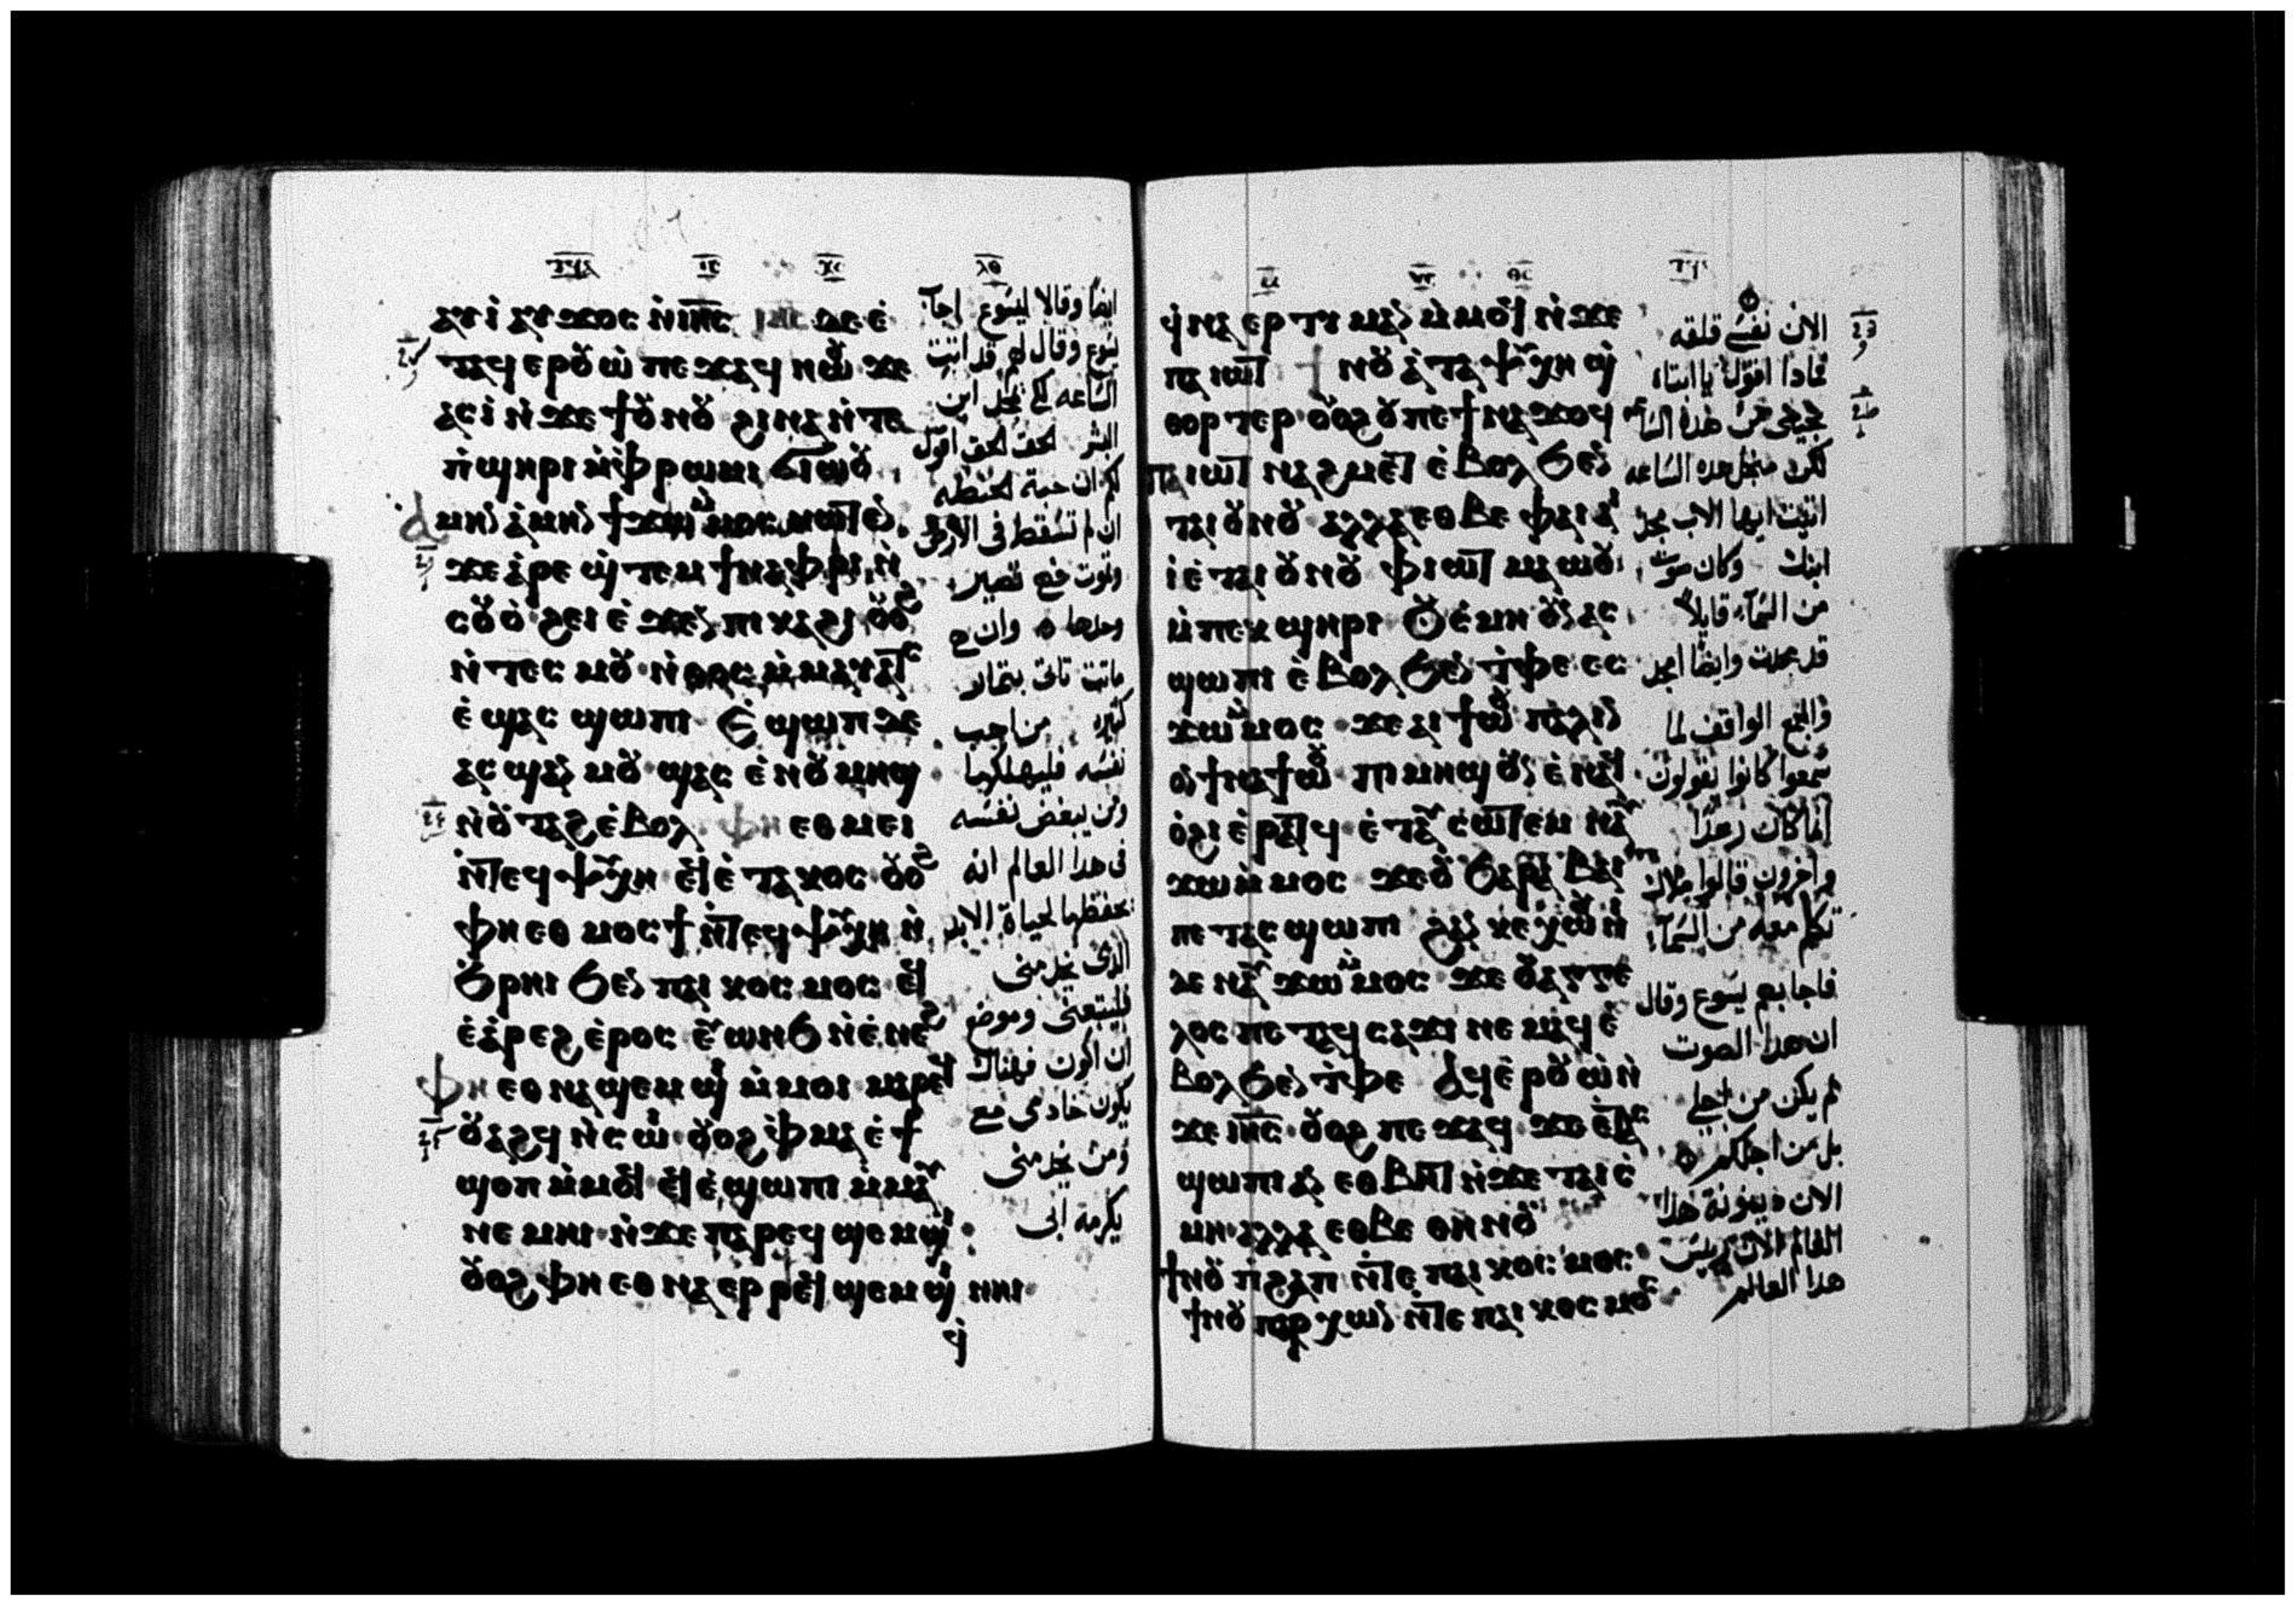 ⲁⲩⲓ̀ ⲁⲩϫⲟⲥ ⲛ̀ⲓⲏ̅ⲥ̅ ⲓⲏⲥ ⲇⲉ ⲉ̀
ⲧⲁϥ ⲉⲣⲟⲩⲱ̀ ⲡⲉϫⲁϥ ⲛⲱⲟⲩ ϫⲉ
ⲁⲥⲓ̀ ⲛ̀ϫⲉ ϯⲟⲩⲛⲟⲩ ϩⲓⲛⲁ ⲛ̀ⲧⲉ
ⲡ̀ϣⲏⲣⲓ ⲙ̀ⲫⲣⲱⲙⲓ ϭⲓⲱⲟⲩ
ⲁⲙⲏⲛ ⲁ̀ⲙⲏⲛ ϯϫⲱ ⲙ̀ⲙⲟⲥ ⲛⲱⲧⲉⲛ
ϫⲉ ⲁ̀ⲣⲉ ϣ̀ⲧⲉⲙ ϯⲛⲁⲫⲣⲓ ⲛ̀
ⲥⲟⲩⲟ̀ ϩⲉⲓ ⲉ̀ϫⲉⲛ ⲡⲓⲕⲁϩⲓ ⲟⲩⲟϩ
ⲛ̀ⲧⲉⲥ ⲙⲟⲩ ⲛ̀ⲑⲟⲥ ⲙ̀ⲙⲁⲩⲁⲧⲥ
ⲉ̀ϣⲁⲥ ϣⲱⲡⲓ ⲉ̀ϣⲱⲡ ⲇⲉ
ⲁⲥ ϣⲁⲛ ⲙⲟⲩ ϣⲁⲥ ⲉ̀ⲛⲟⲩⲙⲏϣ
ⲛ̀ⲟⲩⲧⲁϩ ⲉ̀ⲃⲟⲗ ⲫⲏ ⲉⲑⲙⲉⲓ
ⲛ̀ⲧⲉϥ ⲯⲩⲭⲏ ⲉϥⲉ̀ⲧⲁⲕⲟⲥ ⲟⲩⲟϩ
ⲫⲏ ⲉⲑⲙⲟⲥϯ ⲛ̀ⲧⲉϥⲯⲩⲭⲏ ⲛ̀
ϧⲣⲏⲓ ϧⲉⲛ ⲡⲁⲓ ⲕⲟⲥⲙⲟⲥ ⲉϥ
ⲉ̀ⲁ̀ⲣⲉϩ ⲉ̀ⲣⲟⲥ ⲉⲩⲱⲛϧ ⲛ̀ⲉ̀ⲛⲉϩ
ⲫⲏ ⲉⲑⲛⲁϣⲉⲙϣⲓ ⲙ̀ⲙⲟⲓ ⲙⲁⲣⲉϥ
ⲟⲩⲁϩϥ ⲛ̀ⲥⲱⲓ ⲟⲩⲟϩ ⲫ̀ⲙⲁ ⲉ̀ϯ
ϣⲟⲡ ⲙ̀ⲙⲟϥ ⲉϥⲉ̀ϣⲱⲡⲓ ⲙ̀ⲙⲁⲩ
ⲛⲉⲙⲏⲓ ⲛ̀ϫⲉ ⲡⲁⲣⲉϥϣⲉⲙϣⲓ
ⲟⲩⲟϩ ⲫⲏ ⲉⲑⲛⲁ ⲉⲣ ⲣⲉϥϣⲉⲙϣⲓ ⲛⲏⲓ
ϥ̀
ايضا وقالا ليسوع اجاب
يسوع وقال لهم قد اتيت
الساعه لكي يمجد ابن
البشر الحق الحق اقول
لكم ان حبة الحنطه
ان لم تسقط في الارض
وتموت فهي تصير
وحدها وان هي
ماتت تاتي بثمار
كثيره من احب
نفسه فليهلكها
ومن يبغض نفسه
في هذا العالم انه
يحفظها لحياة الابد
الذي يخدمني
فليتبعني وموضع
ان اكون فهناك
يكون خادمي مع
ومن يخدمني
يكرمه ابي
ϥ̀ⲛⲁ ⲉⲣⲧⲓⲙⲁⲛ ⲙ̀ⲙⲟϥ ⲛ̀ϫⲉ
ⲡⲁⲓⲱⲧ ϯⲛⲟⲩ ⲁ̀ⲧⲁⲯⲩⲭⲏ ϣ̀
ⲑⲟⲣⲧⲉⲣ ⲟⲩⲟϩ ⲟⲩ ⲡⲉϯⲛⲁϫⲟϥ
ⲡⲁⲓⲱⲧ ⲛⲁϩⲙⲉⲧ ⲉ̀ⲃⲟⲗ ϧⲉⲛ
ⲧⲁⲓⲟⲩⲛⲟⲩ ⲁⲗⲗⲁ ⲉⲑⲃⲉ ⲫⲁⲓ ⲁ
ⲓ̀ ⲉ̀ⲧⲁⲓⲟⲩⲛⲟⲩ ⲫⲓⲱⲧ ⲙⲁⲱⲟⲩ
ⲙ̀ⲡⲉⲕϣⲏⲣⲓ ⲟⲩⲥ̀ⲙⲏ ⲟⲩⲛ ⲁⲥ
ϣⲱⲡⲓ ⲉ̀ⲃⲟⲗ ϧⲉⲛ ⲧ̀ⲫⲉ ⲉⲥ
ϫⲱ ⲙ̀ⲙⲟⲥ ϫⲉ ⲁⲓϯⲱⲟⲩ ⲡⲁⲗⲓⲛ
ⲟⲛ ϯⲛⲁϯⲱⲟⲩ ⲡⲓⲙⲏϣ ⲟⲩⲛ ⲉ̀ⲛⲁϥ
ⲟ̀ϩⲓ ⲉ̀ⲣⲁⲧϥ ⲉ̀ⲧⲁⲩ ⲥⲱⲧⲉⲙ ⲛⲁⲩ
ϫⲱ ⲙ̀ⲙⲟⲥ ϫⲉ ⲟⲩϧⲁⲣⲁⲃⲁⲓ
ⲡⲉⲧⲁⲥϣⲱⲡⲓ ϩⲁⲛ ⲕⲉⲭⲱⲟⲩⲛⲓ
ⲇⲉ ⲛⲁⲩ ϫⲱ ⲙ̀ⲙⲟⲥ ϫⲉ ⲟⲩⲁⲅⲅⲉ
ⲗⲟⲥ ⲡⲉⲧⲁϥ ⲥⲁϫⲓ ⲛⲉⲙⲁϥ ⲉ̀
ⲃⲟⲗ ϧⲉⲛ ⲧ̀ⲫⲉ ⲁϥⲉ̀ⲣⲟⲩⲱ̀ ⲛ̀
ϫⲉ ⲓⲏ̅ⲥ̅ ⲟⲩⲟϩ ⲡⲉϫⲁϥ ϫⲉ ⲉⲧⲁⲥ
ϣⲱⲡⲓ ⲁⲛ ⲉⲑⲃⲏⲧ ⲛ̀ϫⲉ ⲧⲁⲓⲥ̀
ⲙⲏ ⲁⲗⲗⲁ ⲉⲑⲃⲉ ⲑⲏⲛⲟⲩ
ϯⲛⲟⲩ ⲡ̀ϩⲁⲡ ⲛ̀ⲧⲉ ⲡⲁⲓ ⲕⲟⲥⲙⲟⲥ
ϯⲛⲟⲩ ⲡⲁⲣⲭⲱⲛ ⲛ̀ⲧⲉ ⲡⲁⲓ ⲕⲟⲥⲙⲟⲥ
الان نفسي قلقه
فماذا اقول يا ابتاه
نجيني من هذه الساعه
لكن من اجل هذه الساعه
اتيت ايها الاب مجد
ابنك وكان صوت
من السماء قايلا
قد مجدت وايضا امجد
والجمع الواقف لما
سمعوا كانوا يقولون
انما كان رعدا
واخرون قالوا ملاك
تكلم معه من السماء
فاجابهم يسوع وقال
ان هذا الصوت
لم يكن من اجلي
بل من اجلكم
الان دينونة هذا
العالم الان رييس
هذا العالم